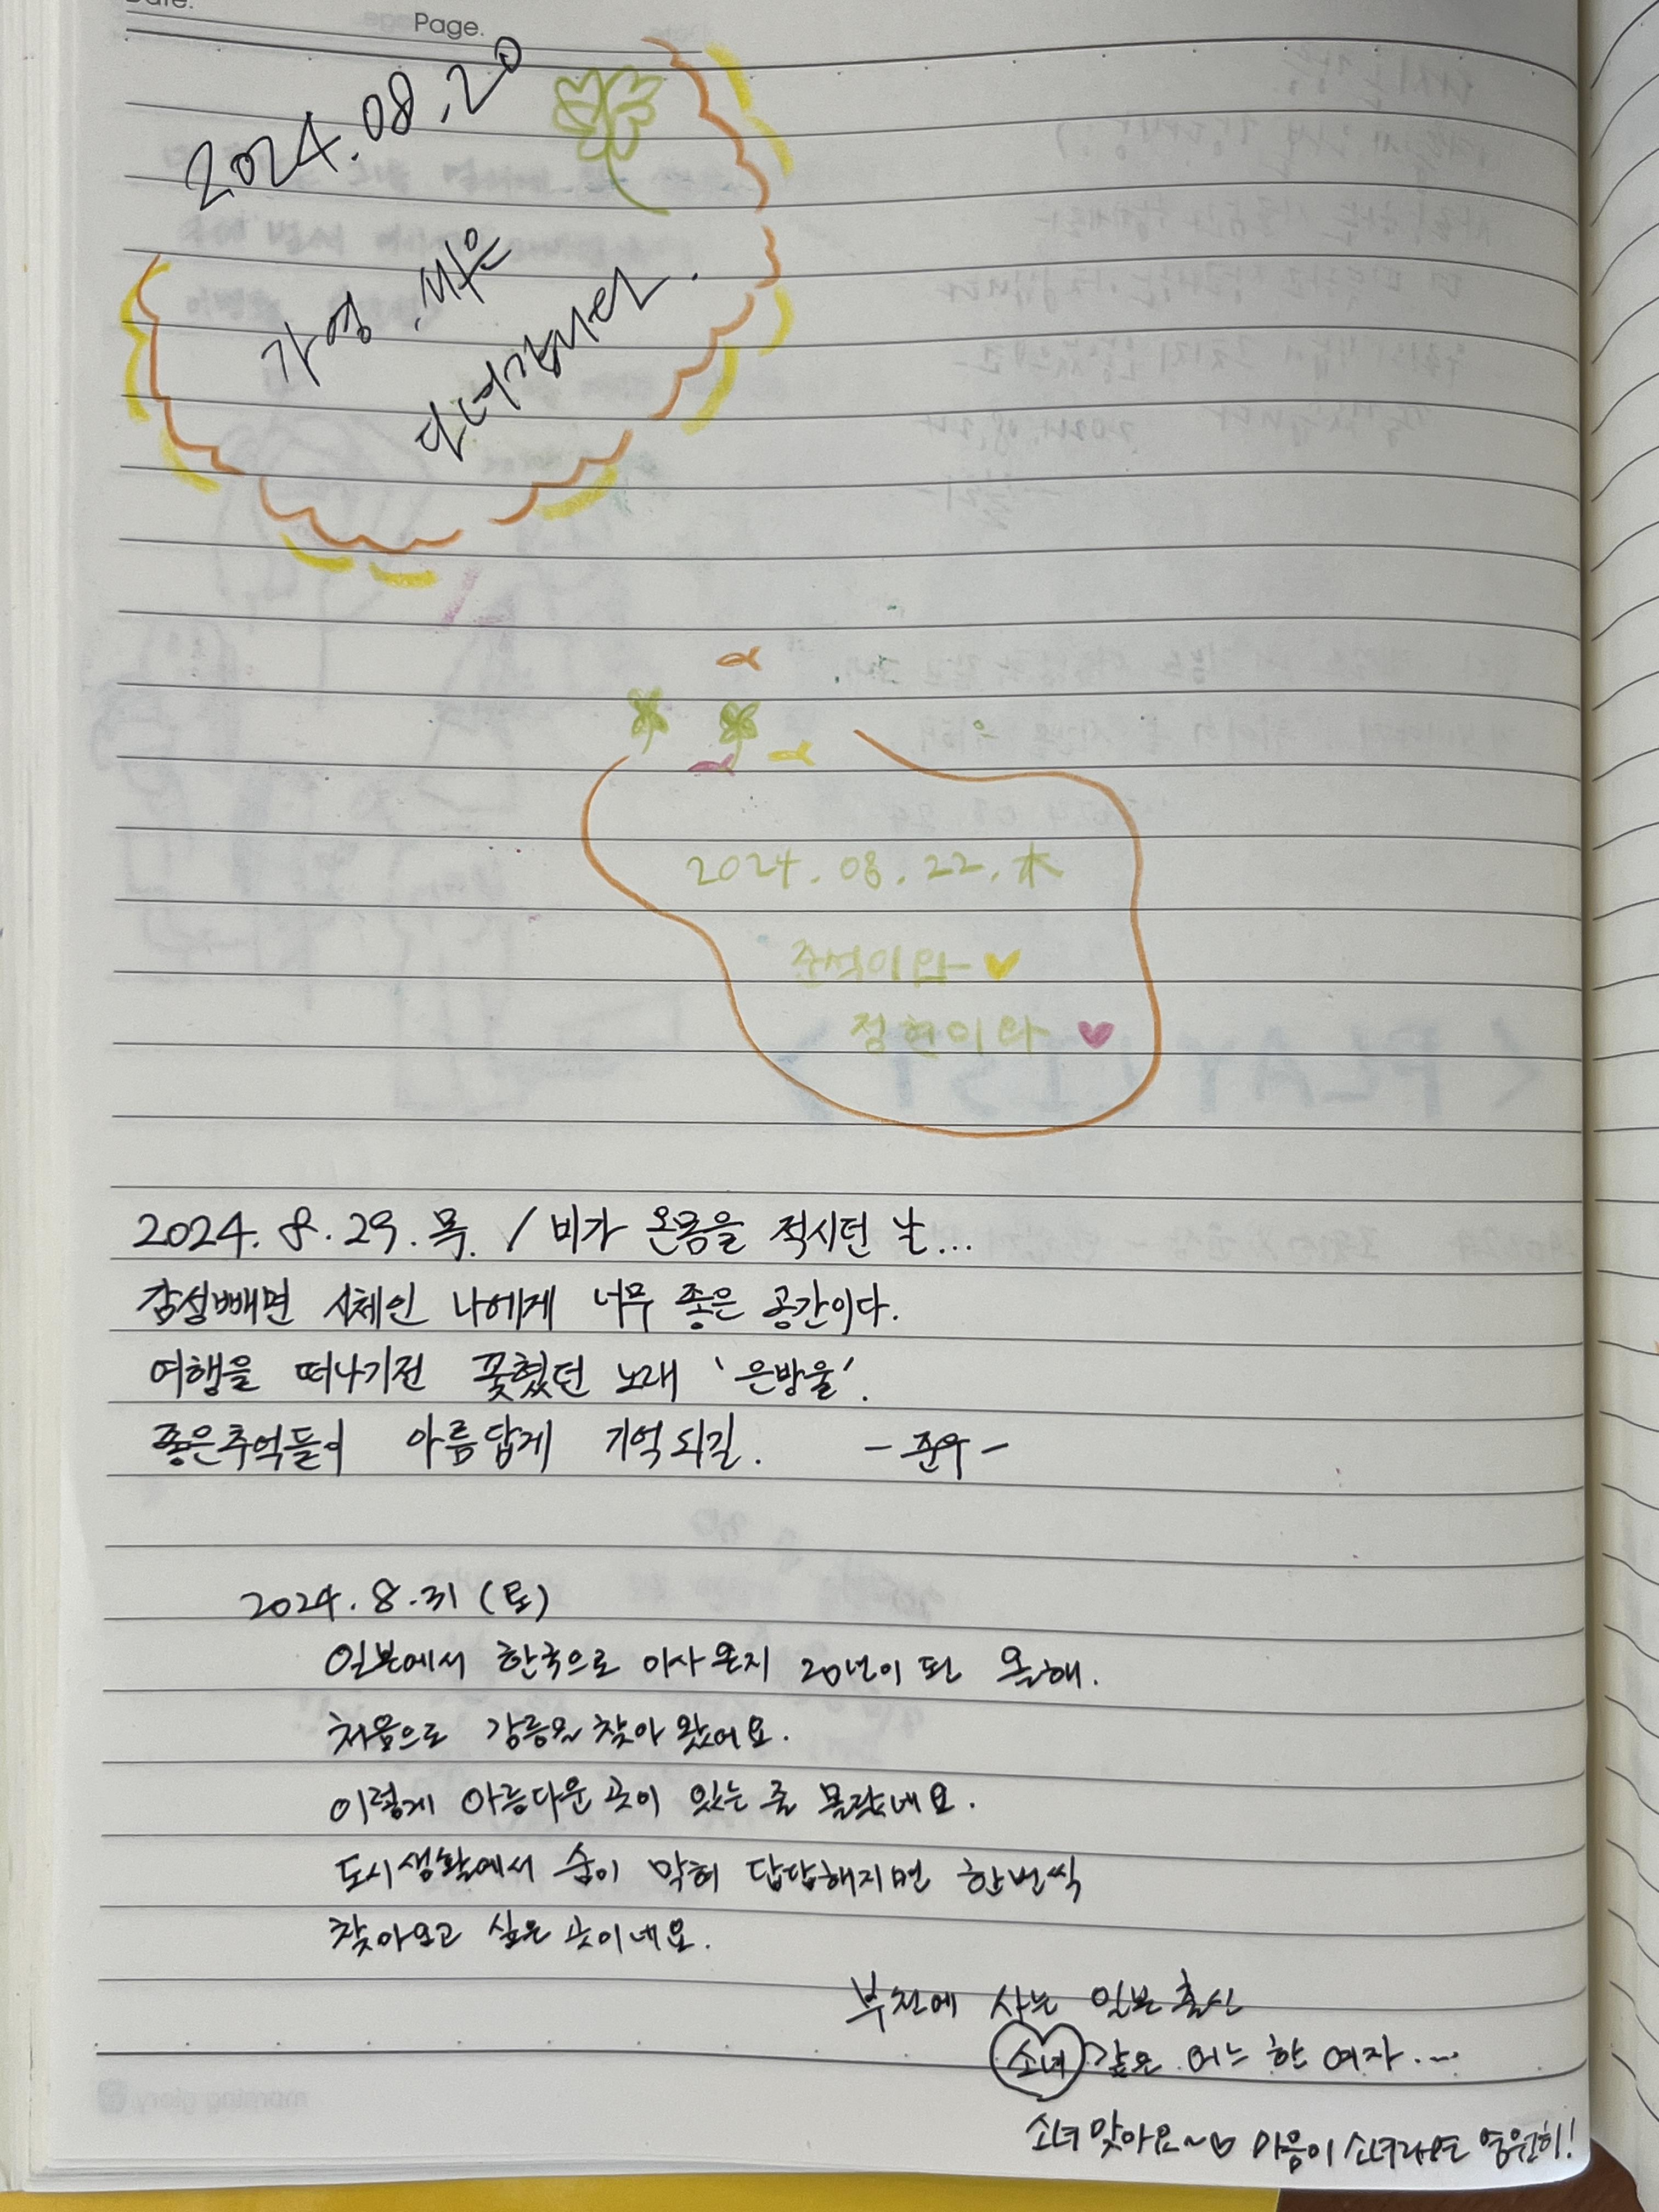 Page.
2024.08.20
가영
다녀갑니다.
2024.08.22.木
준석이와
정현이와
2024.8.29.목. / 비가 온몸을 적시던 날...
감성빼면 시체인 나에게 너무 좋은 공간이다.
여행을 떠나기전 꽂혔던 노래 '은방울'.
좋은추억들이 아름답게 기억되길. -준우-
2024.8.31 (토)
일본에서 한국으로 이사온지 20년이 된 올해.
처음으로 강릉을 찾아 왔어요.
이렇게 아름다운 곳이 있는 줄 몰랐네요.
도시생활에서 숨이 막혀 답답해지면 한번씩
찾아오고 싶은 곳이네요.
부천에 사는 일본출신
소녀 같은 어느 한 여자...
소녀 맞아요~♡ 마음이 소녀라면 영원히!